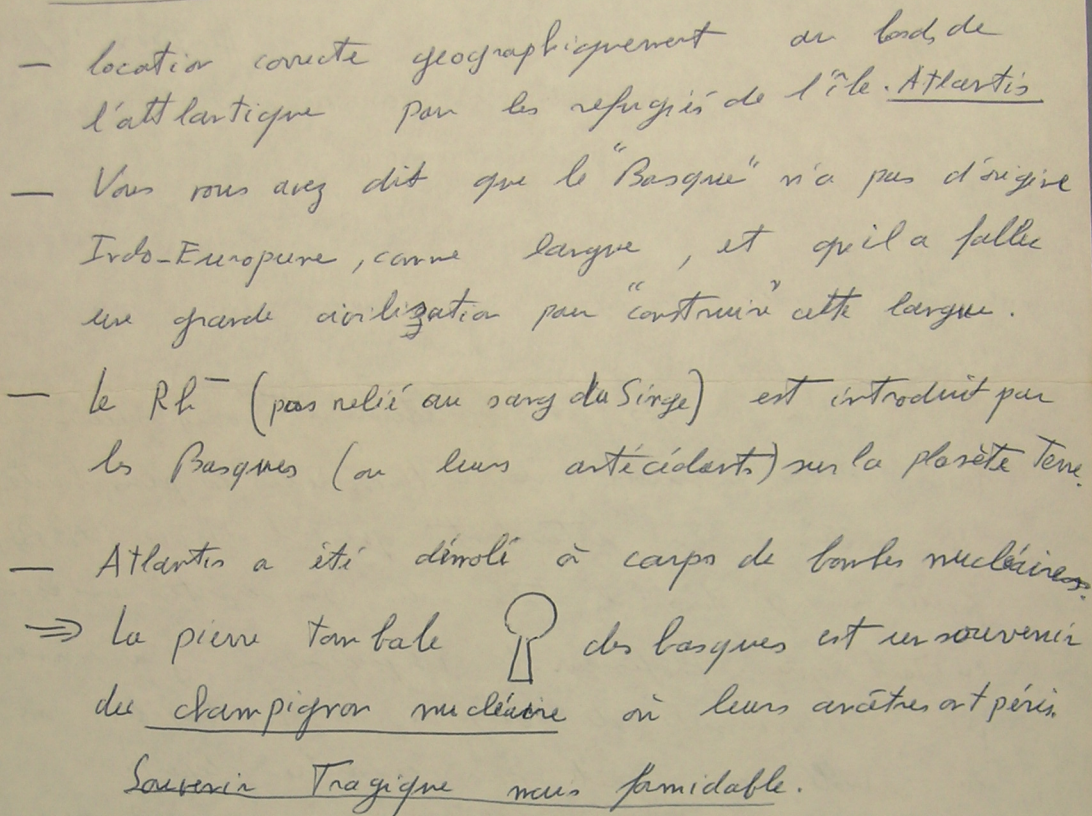 — location correcte geographiquement au bords de
l'attlantique par les refugiés de l'île. Atlantis
— Vous nous avez dit que le "Basque" n'a pas d'origine
Indo-Europunne, comme langue, et qu'il a fallu
une grande civilization pour "construire" cette langue.
— le Rh⁻ (pas relié au sang du Singe) est introduit par
les Basques (ou leurs antécédants) sur la planète Terre.
— Atlantis a été démoli à coups de bombes nucléaires.
⇒ La pierre tombale des basques est un souvenir
du champignon nucléaire où leurs ancêtres ont péris.
Souvenir Tragique mais formidable.